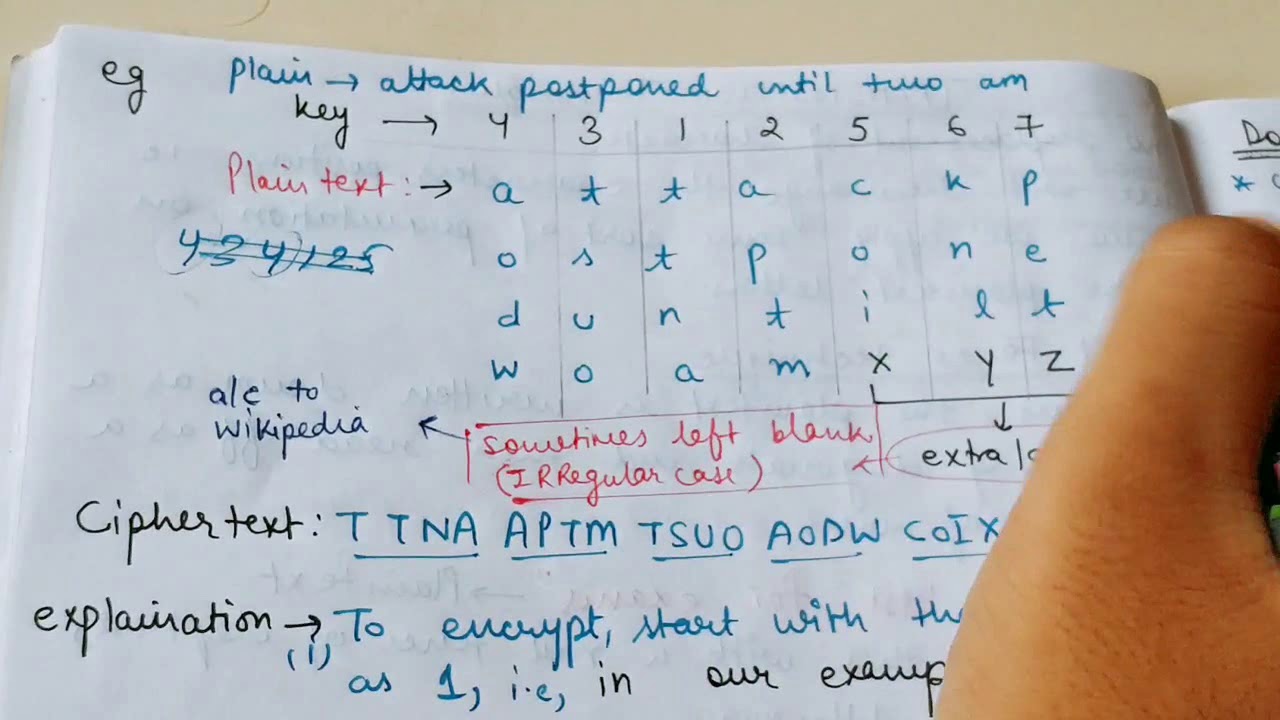 eg plain → attack postponed until two am
key → 4 3 1 2 5 6 7
Plain text: → a t t a c k p
4 3 4 1 2 5 o s t p o n e
d u n t i l t
w o a m x y z
a/c to
wikipedia
sometimes left blank
(IRRegular case)
extra
Cipher text: TTNA APTM TSUO AODW COIX
explaination → To encrypt, start with
(i) as 1, i.e, in our examp
Do
*